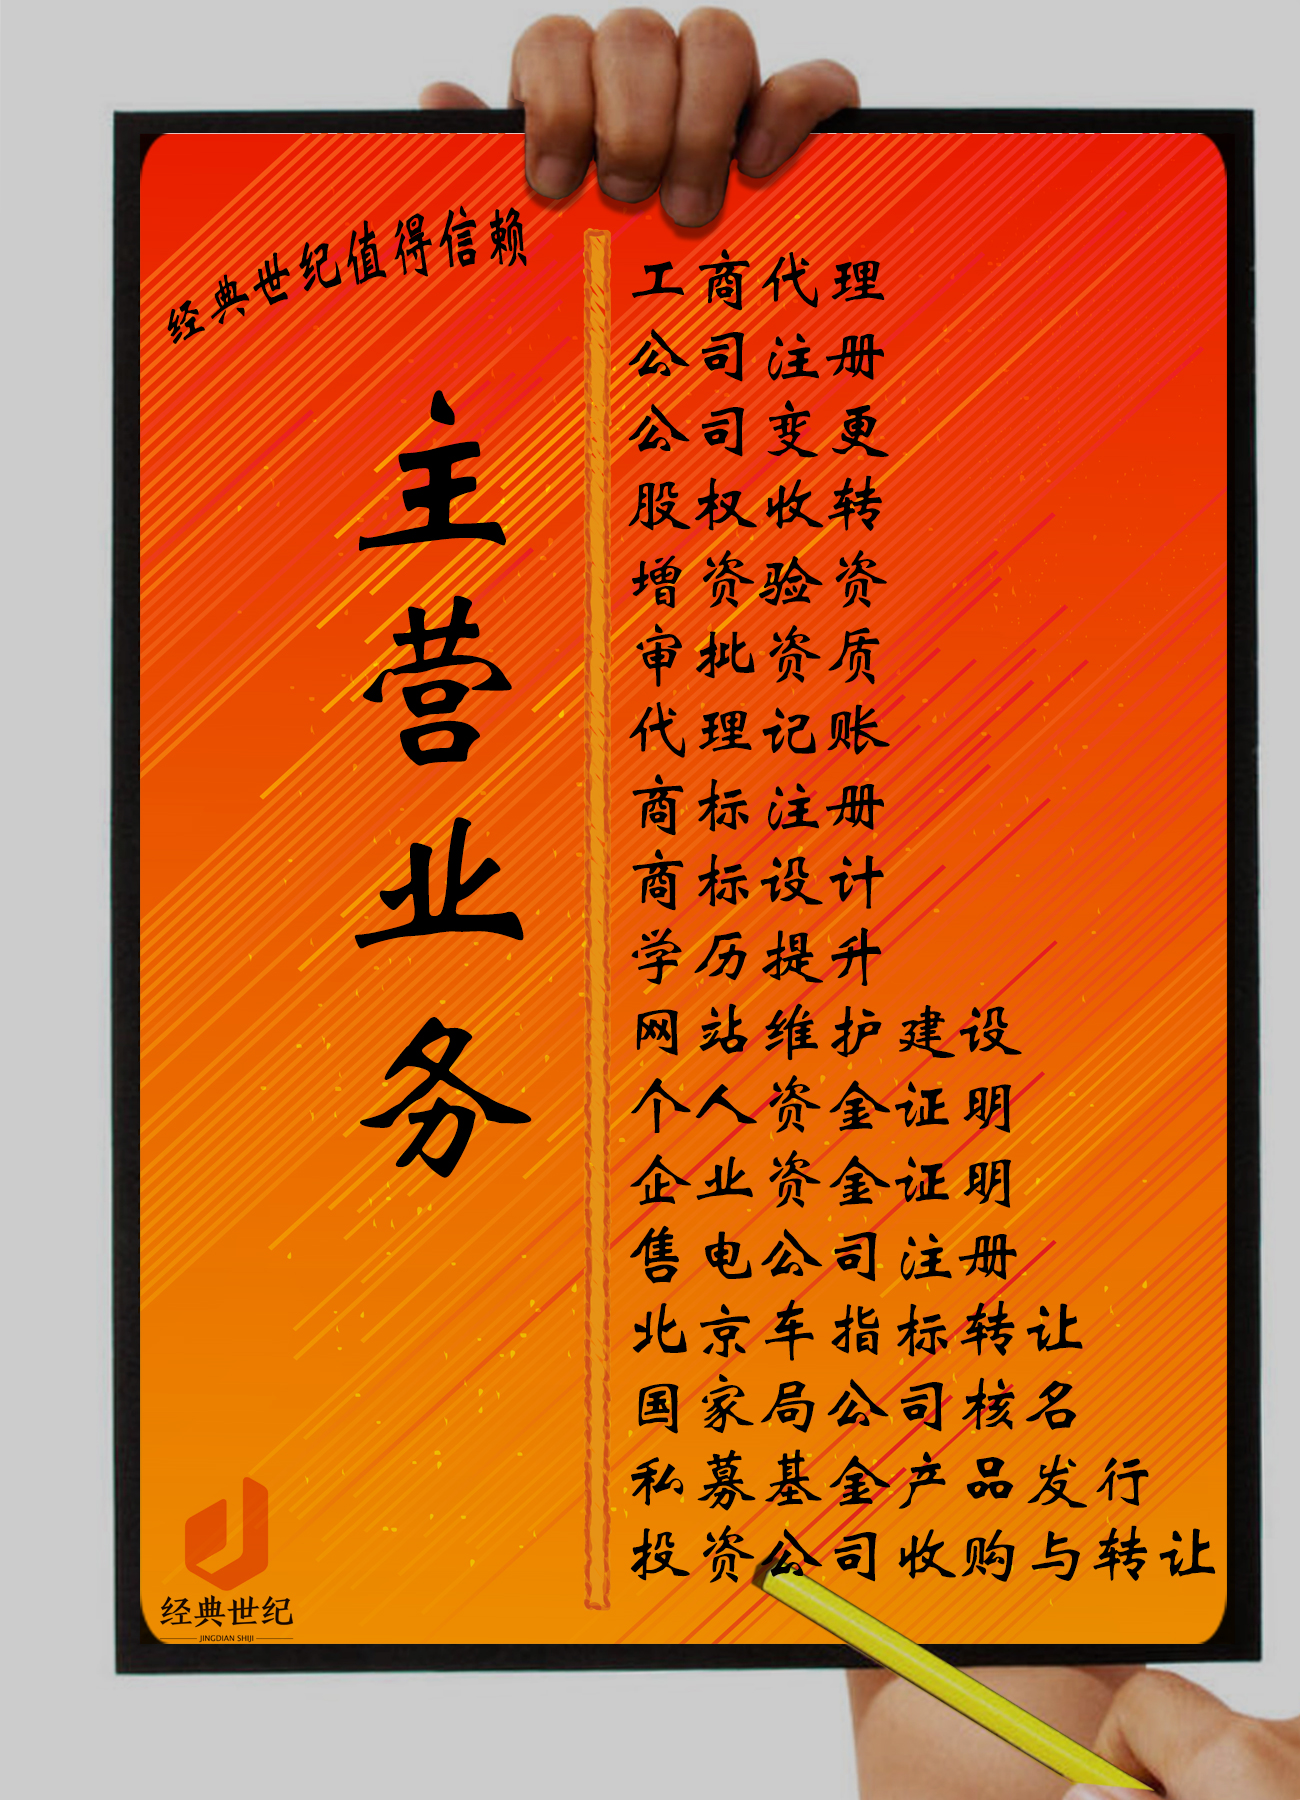 经典世纪值得信赖
主营业务
工商代理
公司注册
公司变更
股权收转
增资验资
审批资质
代理记账
商标注册
商标设计
学历提升
网站维护建设
个人资金证明
企业资金证明
售电公司注册
北京车指标转让
国家局公司核名
私募基金产品发行
投资公司收购与转让
经典世纪
JINGDIAN SHIJI